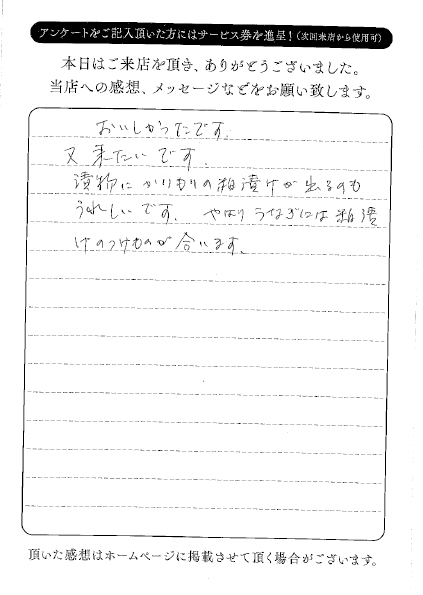 アンケートをご記入頂いた方にはサービス券を進呈！（次回来店から使用可）
本日はご来店を頂き、ありがとうございました。
当店への感想、メッセージなどをお願い致します。
おいしかったです。
又来たいです。
漬物にかりもりの粕漬けが出るのも
うれしいです。やはりうなぎには粕漬
けのつけものが合います。
頂いた感想はホームページに掲載させて頂く場合がございます。